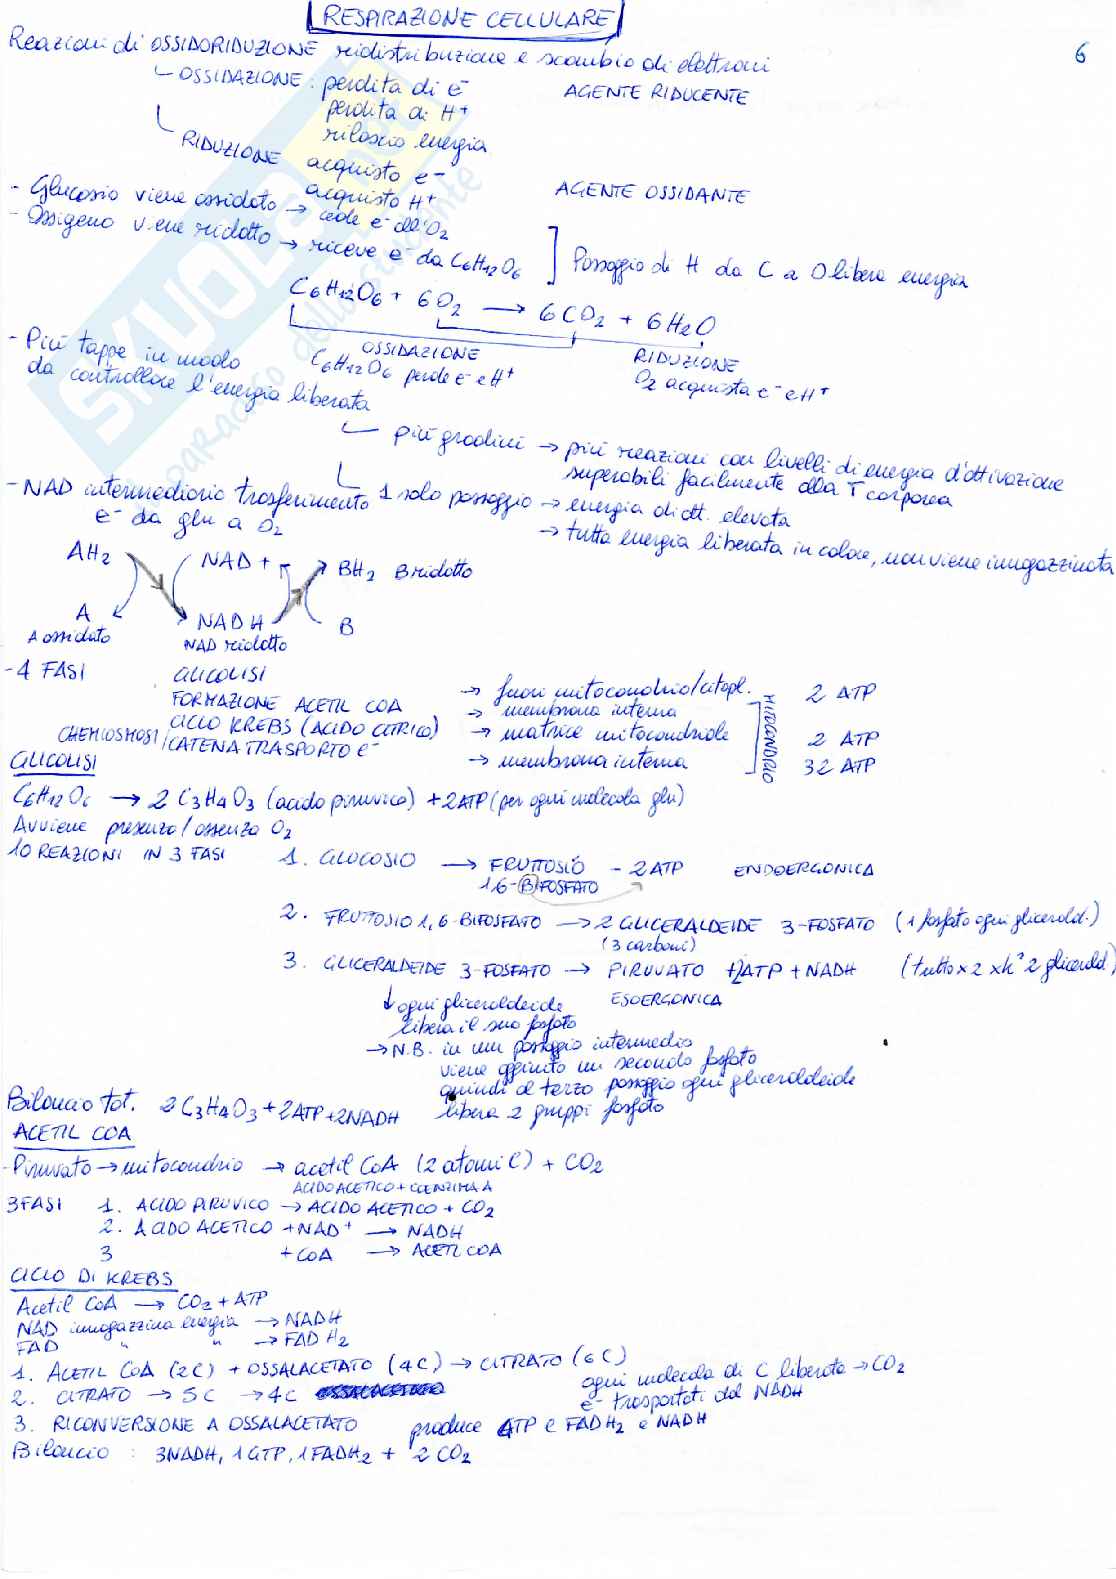 RESPIRAZIONE CELLULARE
6
Reazioni di OSSIDORIDUZIONE ridistribuzione e scambio di elettroni
OSSIDAZIONE: perdita di e- AGENTE RIDUCENTE
perdita di H+
rilascio energia
RIDUZIONE acquisto e-
acquisto H+ AGENTE OSSIDANTE
- Glucosio viene ossidato → cede e- all'O2
- Ossigeno viene ridotto → riceve e- da C6H12O6 ] Passaggio di H da C a O libera energia
C6H12O6 + 6O2 → 6CO2 + 6H2O
OSSIDAZIONE RIDUZIONE
C6H12O6 perde e- e H+ O2 acquista e- e H+
- Più tappe in modo
da controllare l'energia liberata
più gradini → più reazioni con livelli di energia d'attivazione
superabili facilmente alla T corporea
1 solo passaggio → energia di att. elevata
→ tutta energia liberata in calore, non viene immagazzinata
- NAD intermediario trasferimento
e- da glu a O2
AH2 NAD+ BH2 B ridotto
A NADH B
A ossidato NAD ridotto
- 4 FASI GLICOLISI → fuori mitocondrio/citopl. 2 ATP
FORMAZIONE ACETIL COA → membrana interna
CICLO KREBS (ACIDO CITRICO) → matrice mitocondriale 2 ATP
CHEMIOSMOSI/CATENA TRASPORTO e- → membrana interna 32 ATP
MITOCONDRIO
GLICOLISI
C6H12O6 → 2 C3H4O3 (acido piruvico) + 2ATP (per ogni molecola glu)
Avviene presenza/assenza O2
10 REAZIONI IN 3 FASI 1. GLUCOSIO → FRUTTOSIO - 2 ATP ENDOERGONICA
1,6-BIFOSFATO
2. FRUTTOSIO 1,6-BIFOSFATO → 2 GLICERALDEIDE 3-FOSFATO (1 fosfato ogni glicerald.)
(3 carboni)
3. GLICERALDEIDE 3-FOSFATO → PIRUVATO +2ATP + NADH (tutto x 2 xk' 2 glicerald.)
ESOERGONICA
↓ ogni gliceraldeide
libera il suo fosfato
→ N.B. in un passaggio intermedio
viene aggiunto un secondo fosfato
quindi al terzo passaggio ogni gliceraldeide
libera 2 gruppi fosfato
Bilancio tot. 2 C3H4O3 + 2ATP + 2NADH
ACETIL COA
- Piruvato → mitocondrio → acetil CoA (2 atomi C) + CO2
ACIDO ACETICO + COENZIMA A
3 FASI 1. ACIDO PIRUVICO → ACIDO ACETICO + CO2
2. ACIDO ACETICO + NAD+ → NADH
3 + CoA → ACETIL COA
CICLO DI KREBS
Acetil CoA → CO2 + ATP
NAD immagazzina energia → NADH
FAD " " → FADH2
1. ACETIL CoA (2C) + OSSALACETATO (4C) → CITRATO (6C)
2. CITRATO → 5C → 4C
ogni molecola di C liberata → CO2
e- trasportati dal NADH
3. RICONVERSIONE A OSSALACETATO produce ATP e FADH2 e NADH
Bilancio: 3NADH, 1GTP, 1FADH2 + 2CO2